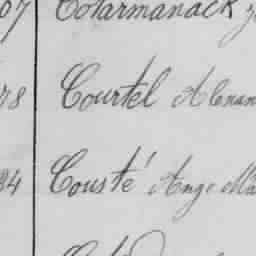 07 Cotarmanack
78 Courtel
84 Cousté Ange Ma